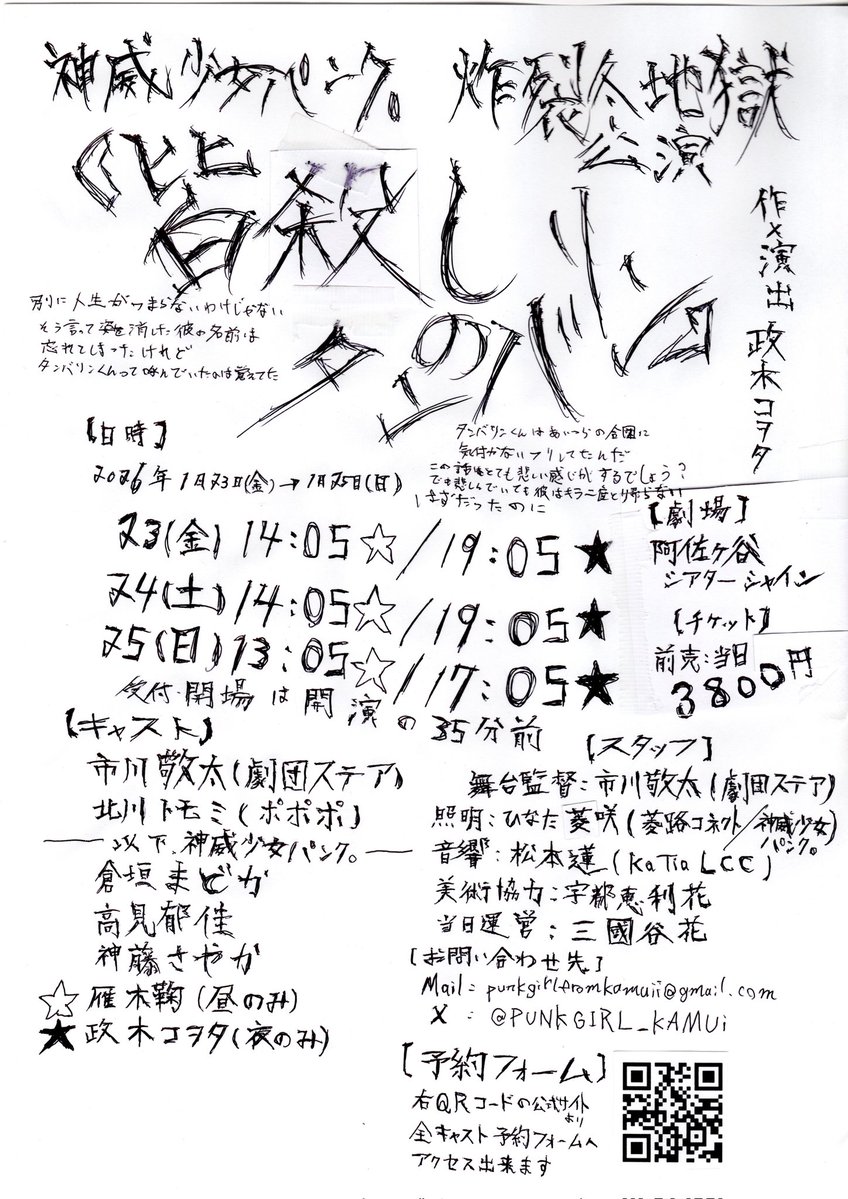 神威少女パンク。 炸裂冬地獄公演
皆殺しの
タンバリン
作×演出 政木コヲタ
別に人生がつまらないわけじゃない
そう言って姿を消した彼の名前は
忘れてしまったけれど
タンバリンくんって呼んでいたのは覚えてた
タンバリンくんはあいつらの合図に
気付かないフリしてたんだ
この話はとても悲しい感じがするでしょう?
でも悲しんでいても彼はもう二度と帰らない
はずだったのに
【日時】
2026年1月23日(金)→1月25日(日)
23(金)14:05☆/19:05★
24(土)14:05☆/19:05★
25(日)13:05☆/17:05★
受付・開場は開演の35分前
【劇場】
阿佐ヶ谷
シアターシャイン
【チケット】
前売:当日
3800円
【キャスト】
市川敬太(劇団ステア)
北川トモミ(ポポポ)
以下、神威少女パンク。
倉垣まどか
高見郁佳
神藤さやか
☆雁木鞠(昼のみ)
★政木コヲタ(夜のみ)
【スタッフ】
舞台監督:市川敬太(劇団ステア)
照明:ひなた菱咲(菱路コネクト/神威少女パンク。)
音響:松本蓮(KaTiaLCC)
美術協力:宇都恵利花
当日運営:三國谷花
【お問い合わせ先】
Mail:punkgirlfromkamuii@gmail.com
X:@PUNKGIRL_KAMUi
【予約フォーム】
右QRコードの公式サイトより
全キャスト予約フォームへ
アクセス出来ます